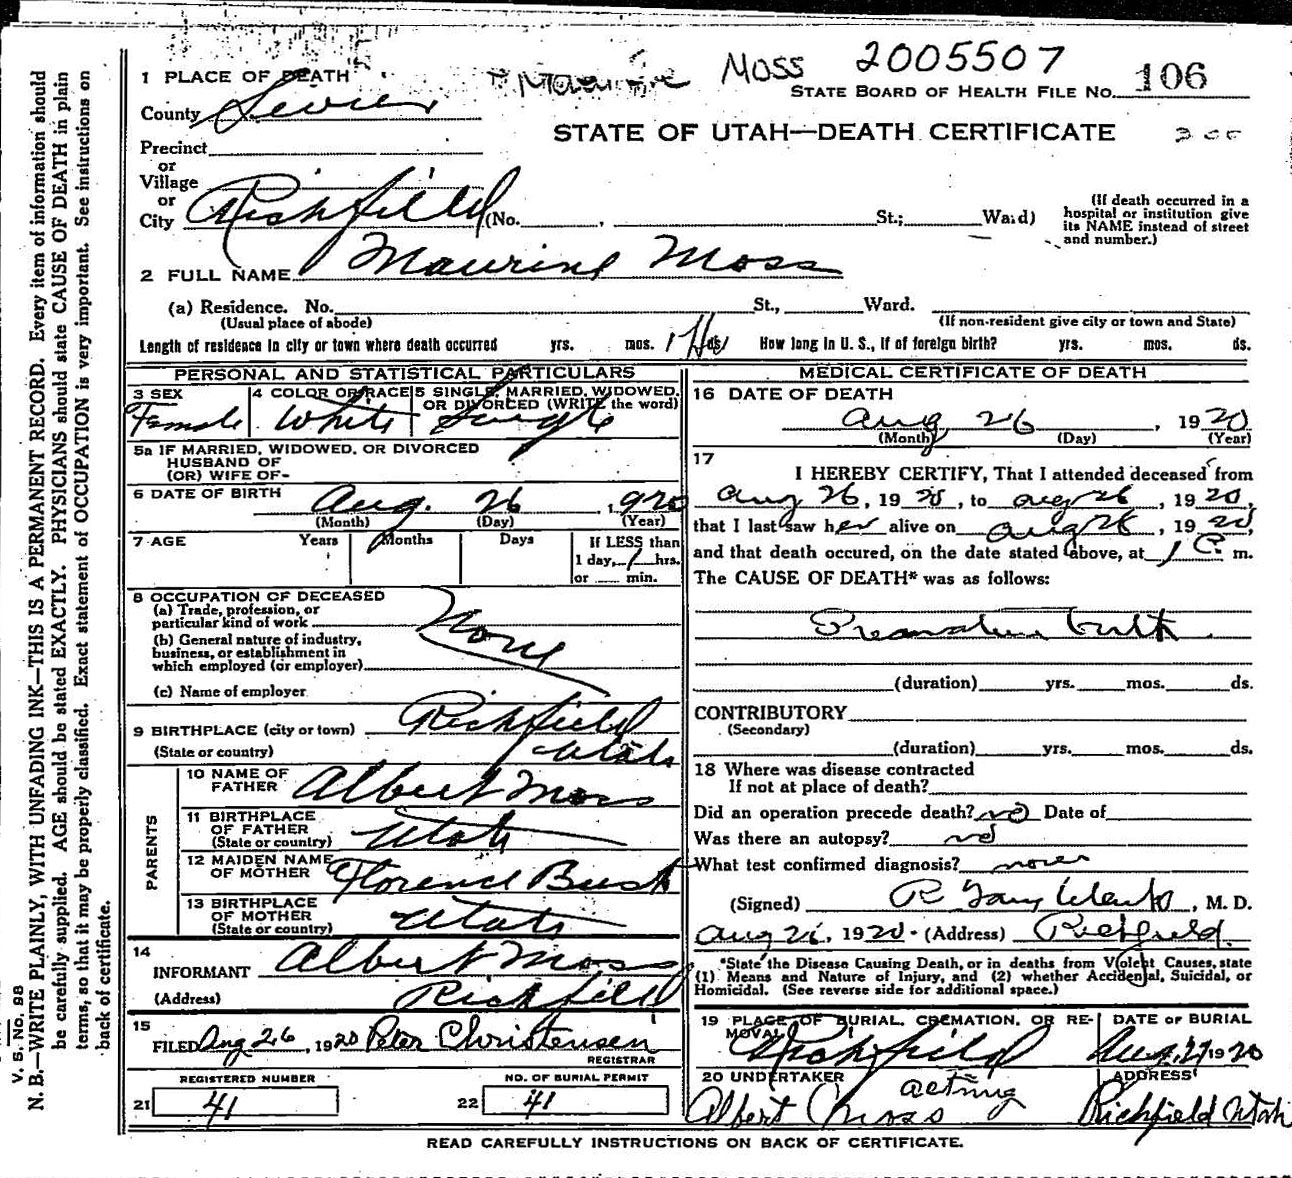 Maurine Moss 2005507
1 PLACE OF DEATH
STATE BOARD OF HEALTH FILE No. 106
County Sevier
STATE OF UTAH—DEATH CERTIFICATE
Precinct
or
Village
or
City Richfield (No. , St.; Ward)
(If death occurred in a
hospital or institution give
its NAME instead of street
and number.)
2 FULL NAME Maurine Moss
(a) Residence. No. St., Ward.
(Usual place of abode) (If non-resident give city or town and State)
Length of residence in city or town where death occurred yrs. mos. 1 Hr ds. How long in U. S., if of foreign birth? yrs. mos. ds.
PERSONAL AND STATISTICAL PARTICULARS
3 SEX Female
4 COLOR OR RACE White
5 SINGLE, MARRIED, WIDOWED,
OR DIVORCED (WRITE the word) Single
5a IF MARRIED, WIDOWED, OR DIVORCED
HUSBAND OF
(OR) WIFE OF-
6 DATE OF BIRTH Aug. 26, 1920
(Month) (Day) (Year)
7 AGE Years Months Days If LESS than
1 day, 1 hrs.
or min.
8 OCCUPATION OF DECEASED
(a) Trade, profession, or
particular kind of work None
(b) General nature of industry,
business, or establishment in
which employed (or employer)
(c) Name of employer
9 BIRTHPLACE (city or town) Richfield
(State or country) Utah
PARENTS
10 NAME OF
FATHER Albert Moss
11 BIRTHPLACE
OF FATHER
(State or country) Utah
12 MAIDEN NAME
OF MOTHER Florence Bust
13 BIRTHPLACE
OF MOTHER
(State or country) Utah
14
INFORMANT Albert Moss
(Address) Richfield
15
FILED Aug 26, 1920 Peter Christensen
REGISTRAR
REGISTERED NUMBER
21 41
NO. OF BURIAL PERMIT
22 41
MEDICAL CERTIFICATE OF DEATH
16 DATE OF DEATH
Aug 26, 1920
(Month) (Day) (Year)
17
I HEREBY CERTIFY, That I attended deceased from
Aug 26, 1920, to Aug 26, 1920,
that I last saw her alive on Aug 26, 1920,
and that death occured, on the date stated above, at 1 P. m.
The CAUSE OF DEATH* was as follows:
Premature birth
(duration) yrs. mos. ds.
CONTRIBUTORY
(Secondary)
(duration) yrs. mos. ds.
18 Where was disease contracted
If not at place of death?
Did an operation precede death? no Date of
Was there an autopsy? no
What test confirmed diagnosis? none
(Signed) , M. D.
Aug 26, 1920 - (Address) Richfield.
*State the Disease Causing Death, or in deaths from Violent Causes, state
(1) Means and Nature of Injury, and (2) whether Accidental, Suicidal, or
Homicidal. (See reverse side for additional space.)
19 PLACE OF BURIAL, CREMATION, OR RE-
MOVAL Richfield
DATE OF BURIAL
Aug. 27 1920
20 UNDERTAKER acting
Albert Moss
ADDRESS
Richfield Utah
READ CAREFULLY INSTRUCTIONS ON BACK OF CERTIFICATE.
V. S. No. 98
N. B.—WRITE PLAINLY, WITH UNFADING INK—THIS IS A PERMANENT RECORD. Every item of information should
be carefully supplied. AGE should be stated EXACTLY. PHYSICIANS should state CAUSE OF DEATH in plain
terms, so that it may be properly classified. Exact statement of OCCUPATION is very important. See instructions on
back of certificate.